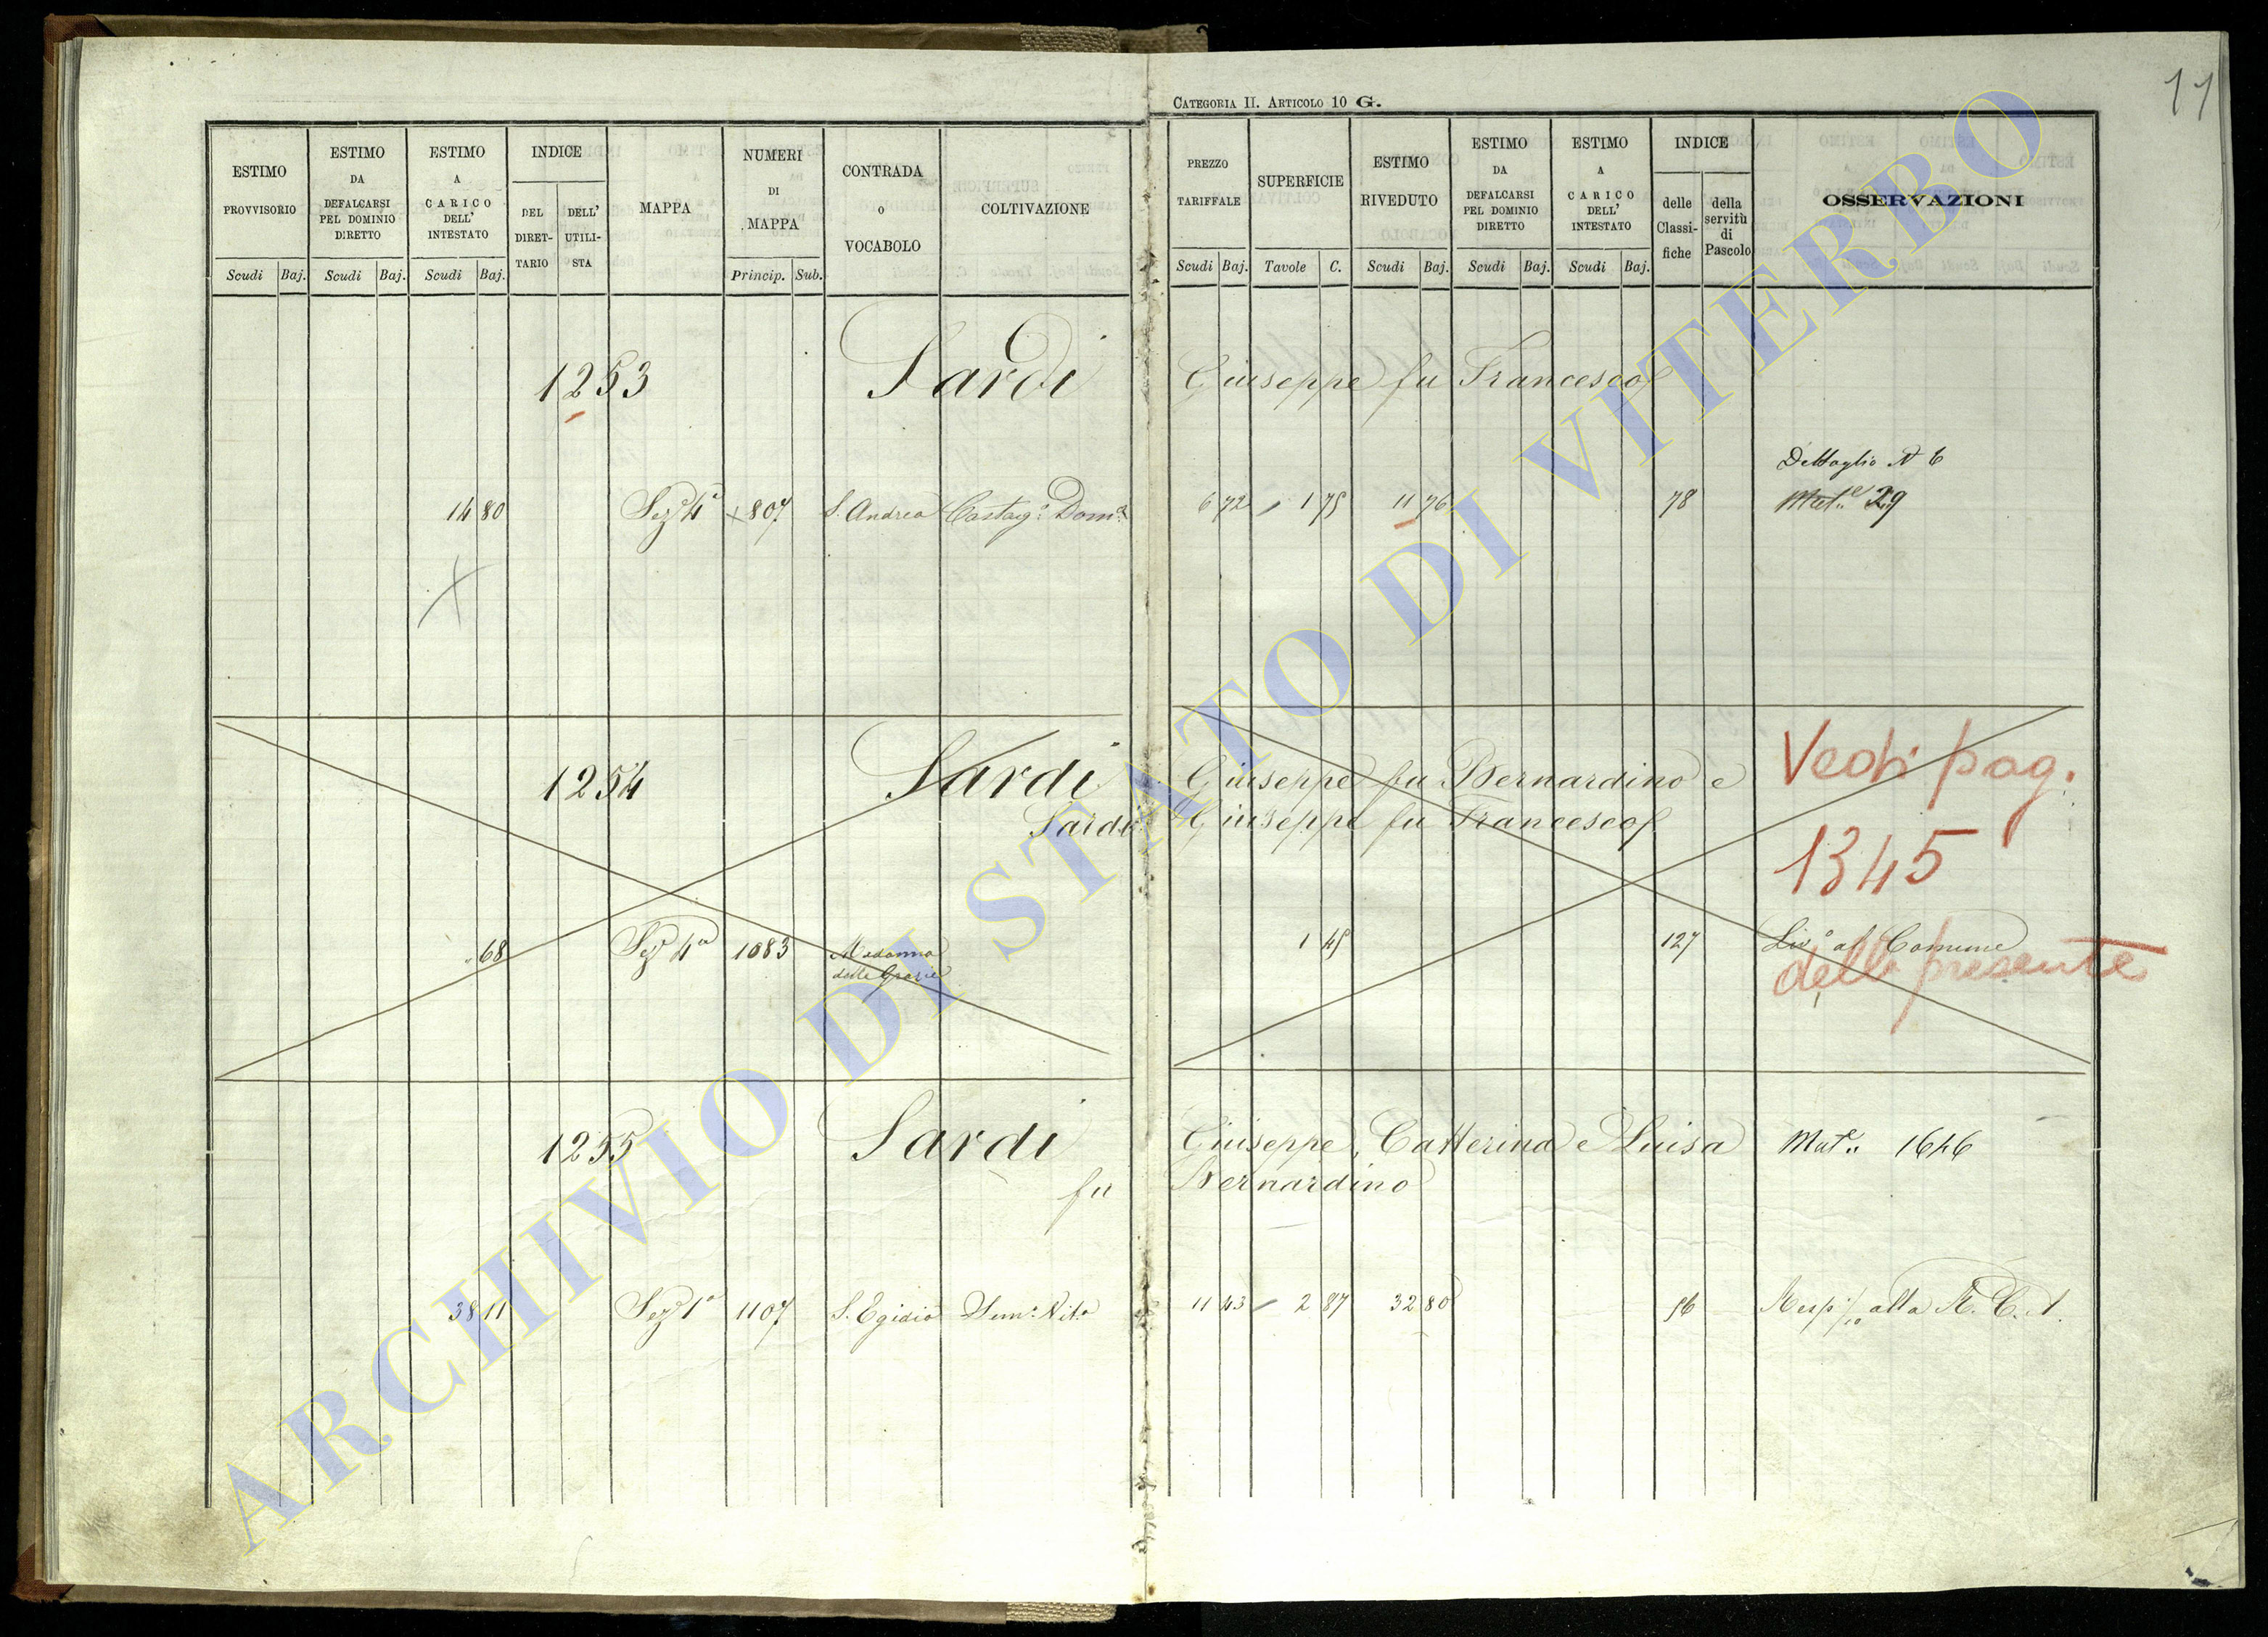 11
CATEGORIA II. ARTICOLO 10 G.
ESTIMO PROVVISORIO
Scudi Baj.
ESTIMO DA DEFALCARSI PEL DOMINIO DIRETTO
Scudi Baj.
ESTIMO A CARICO DELL' INTESTATO
Scudi Baj.
INDICE
DEL DIRET-TARIO
DELL' UTILI-STA
MAPPA
NUMERI DI MAPPA
Princip. Sub.
CONTRADA O VOCABOLO
COLTIVAZIONE
PREZZO TARIFFALE
Scudi Baj.
SUPERFICIE
Tavole C.
ESTIMO RIVEDUTO
Scudi Baj.
ESTIMO DA DEFALCARSI PEL DOMINIO DIRETTO
Scudi Baj.
ESTIMO A CARICO DELL' INTESTATO
Scudi Baj.
INDICE
delle Classi-fiche
della servitù di Pascolo
OSSERVAZIONI
1253 Sardi Giuseppe fu Francesco
Dettaglio N 6
14 80 Sez. 4ª 807 S. Andrea Castag: Dom: 6 72 1 75 11 76 78 Mat.e 29
1254 Sardi Giuseppe fu Bernardino e
Sardi Giuseppe fu Francesco
Vedi pag.
1345
della presente
68 Sez. 4ª 1083 Madonna delle Grazie 1 45 127 Liv.º al Comune
1255 Sardi Giuseppe, Catterina e Luisa Mat.e 1646
fu Bernardino
38 11 Sez. 1ª 1107 S. Egidio Sem: Vit.o 11 43 2 87 32 80 56 alla R. C. A.
ARCHIVIO DI STATO DI VITERBO